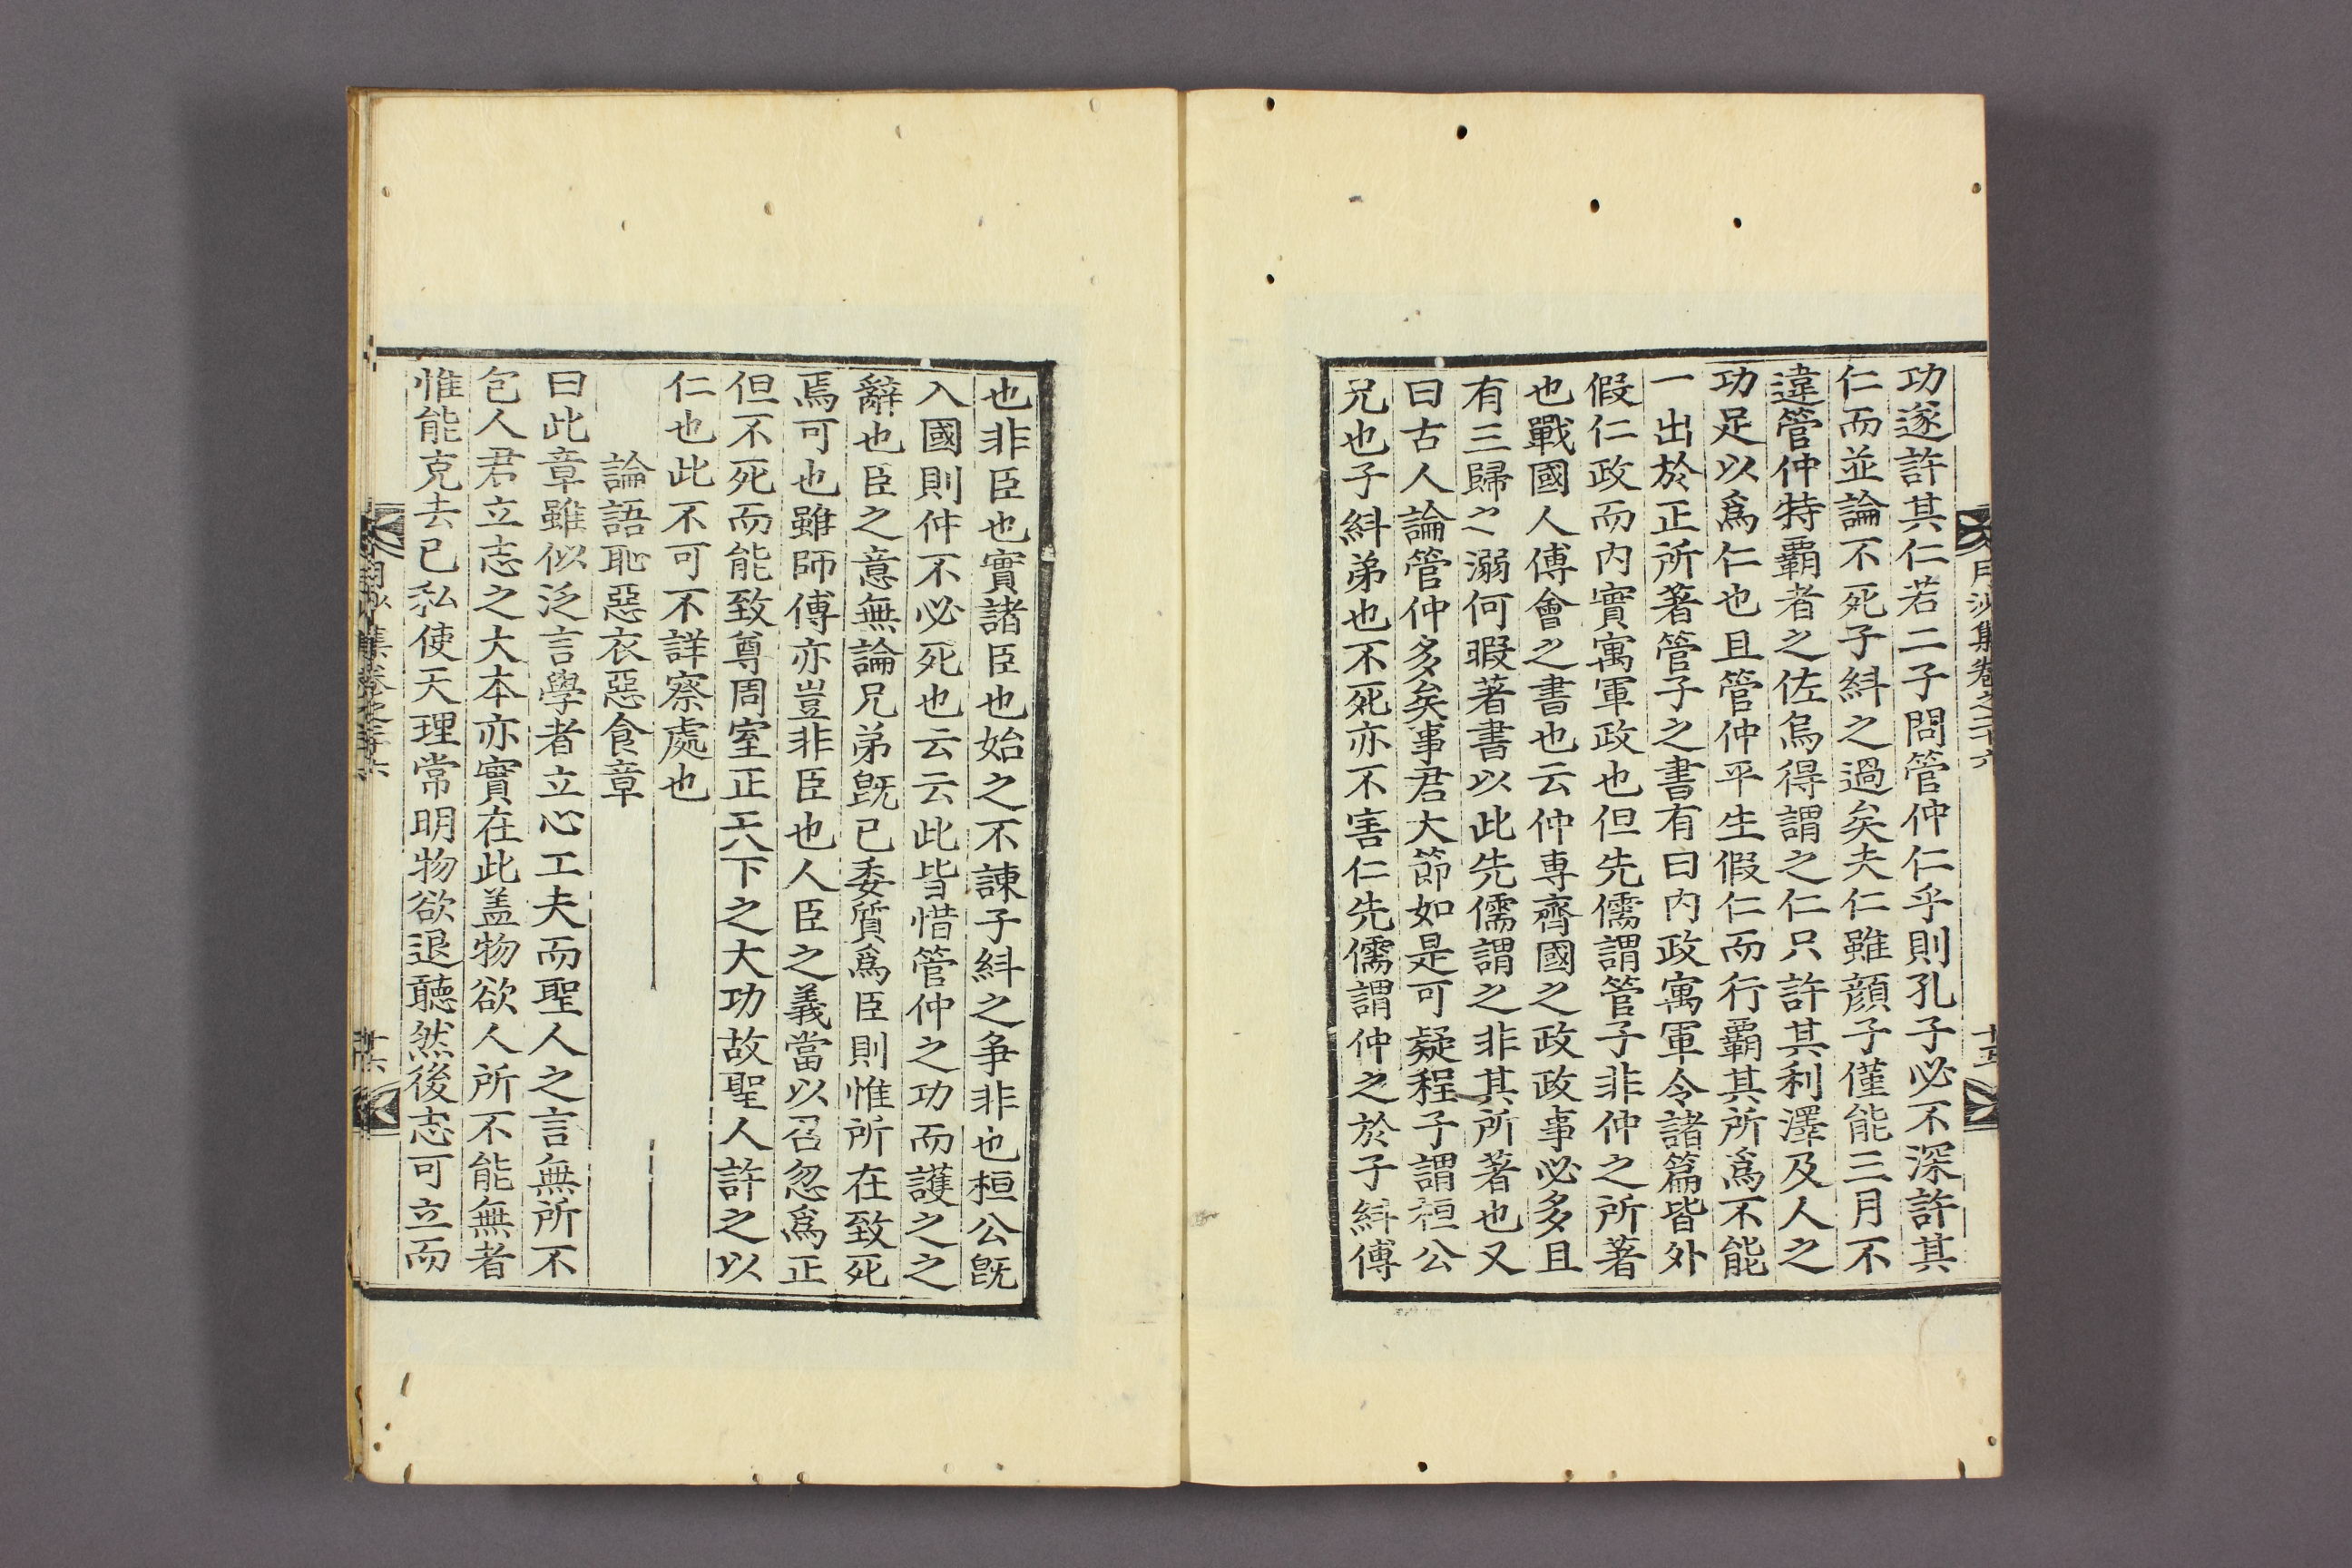 月沙集卷之三十六
十五
功遂許其仁若二子問管仲仁乎則孔子必不深許其
仁而並論不死子糾之過矣夫仁雖顔子僅能三月不
違管仲特覇者之佐烏得謂之仁只許其利澤及人之
功足以爲仁也且管仲平生假仁而行覇其所爲不能
一出於正所著管子之書有曰內政寓軍令諸篇皆外
假仁政而內實寓軍政也但先儒謂管子非仲之所著
也戰國人傅會之書也云仲專齊國之政政事必多且
有三歸之溺何暇著書以此先儒謂之非其所著也又
曰古人論管仲多矣事君大節如是可疑程子謂桓公
兄也子糾弟也不死亦不害仁先儒謂仲之於子糾傅
也非臣也實諸臣也始之不諫子糾之争非也桓公旣
入國則仲不必死也云云此皆惜管仲之功而護之之
辭也臣之意無論兄弟旣已委質爲臣則惟所在致死
焉可也雖師傅亦豈非臣也人臣之義當以召忽爲正
但不死而能致尊周室正天下之大功故聖人許之以
仁也此不可不詳察處也
論語恥惡衣惡食章
曰此章雖似泛言學者立心工夫而聖人之言無所不
包人君立志之大本亦實在此盖物欲人所不能無者
惟能克去己私使天理常明物欲退聽然後志可立而
月沙集卷之三十六
十六